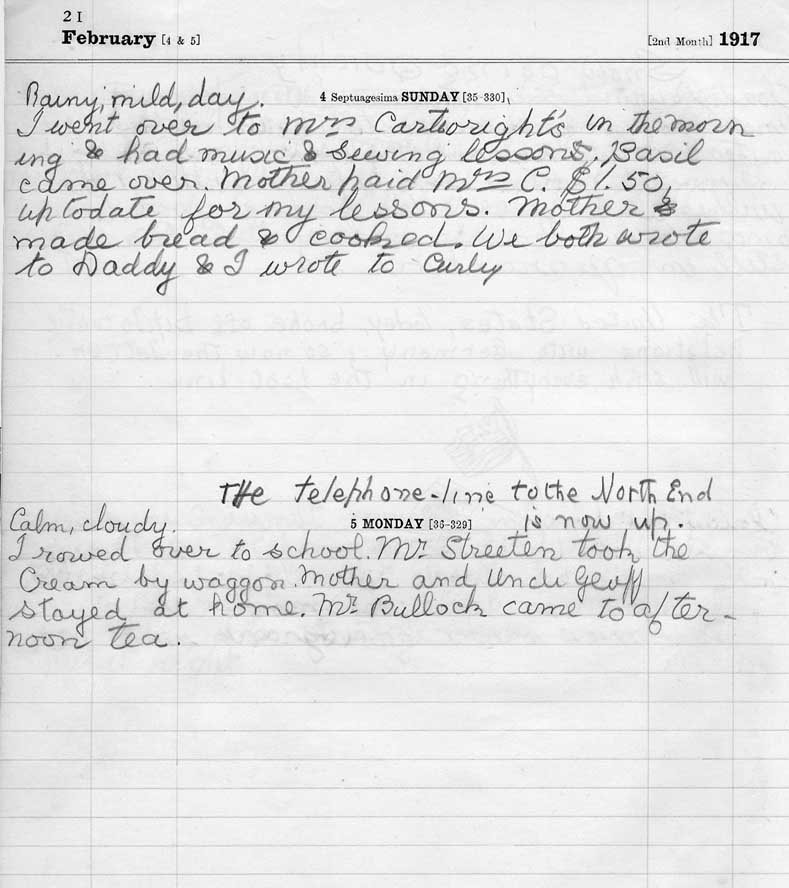 21
February [4 & 5]
[2nd Month] 1917
Rainy, mild, day.
4 Septuagesima SUNDAY [35-330]
I went over to Mrs Cartwright's in the morn
ing & had music & sewing lessons. Basil
came over. Mother paid Mrs C. $1.50,
up to date for my lessons. Mother &
made bread & cooked. We both wrote
to Daddy & I wrote to Curley
The telephone-line to the North End
is now up.
Calm, cloudy.
5 MONDAY [36-329]
I rowed over to school. Mr Streeten took the
Cream by waggon. Mother and Uncle Geoff
stayed at home. Mr. Bullock came to after-
noon tea.